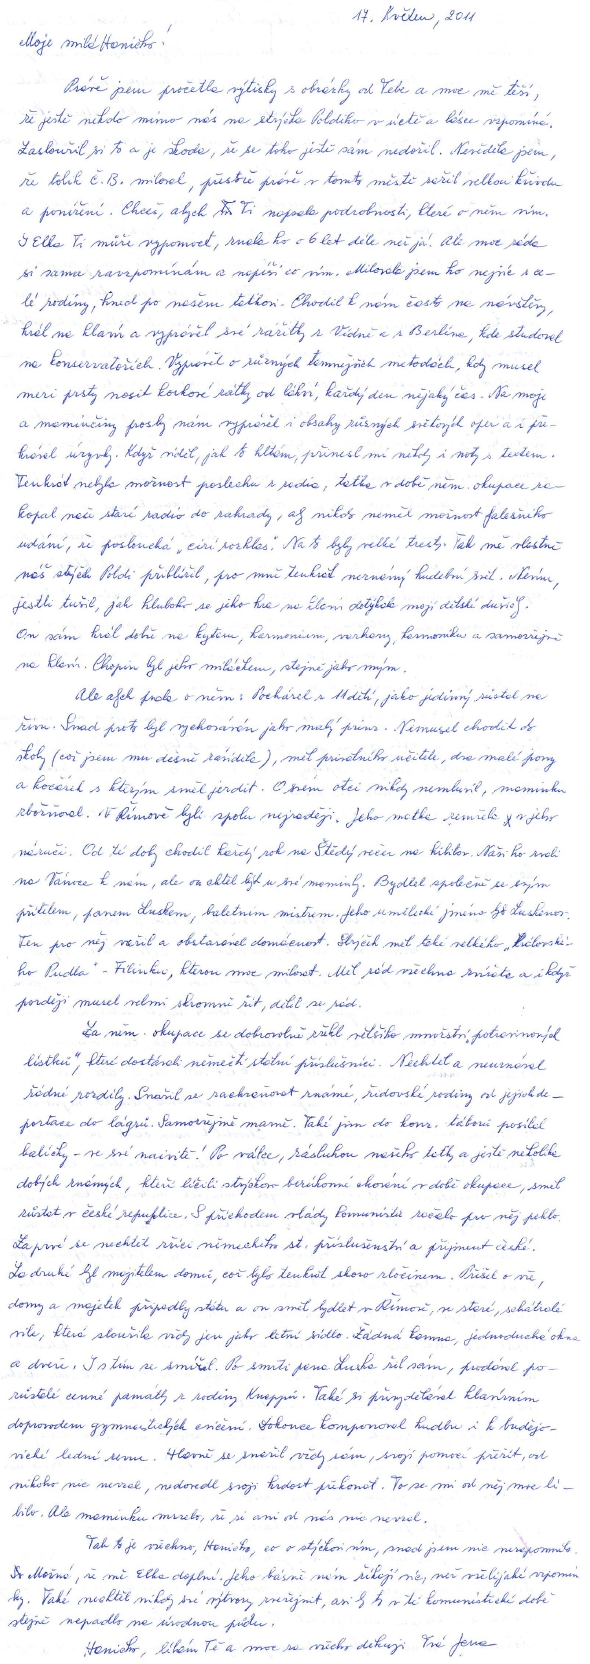 17. Květen, 2011
Moje milá Haničko!
Právě jsem pročetla výtisky s obrázky od Tebe a moc mě těší,
že ještě někdo mimo nás na strýčka Poldiho v úctě a lásce vzpomíná.
Zasloužil si to a je škoda, že se toho ještě sám nedožil. Nevěděla jsem,
že tolik Č.B. miloval, přestože právě v tomto městě zažil velkou křivdu
a ponížení. Chceš, abych Ti napsala podrobnosti, které o něm vím.
I Ella Ti může vypomoct, znala ho o 6 let déle než já. Ale moc ráda
si sama zavzpomínám a napíši co vím. Milovala jsem ho nejvíc z ce-
lé rodiny, hned po našem taťkovi. Chodil k nám často na návštěvy,
hrál na klavír a vyprávěl své zážitky z Vídně a z Berlína, kde studoval
na konservatořích. Vyprávěl o různých tamnějších metodách, kdy musel
mezi prsty nosit korkové zátky od láhví, každý den nějaký čas. Na moje
a maminčiny prosby nám vyprávěl i obsahy různých světových oper a i pře-
hrával úryvky. Když viděl, jak to hltám, přinesl mi někdy i noty s textem.
Tenkrát nebyla možnost poslechu z radia, taťka v době něm. okupace za-
kopal naše staré radio do zahrady, aby nikdo neměl možnost falešného
udání, že poslouchá „cizí rozhlas". Na to byly velké tresty. Tak mě vlastně
náš strýček Poldi přiblížil, pro mně tenkrát neznámý hudební svět. Nevím,
jestli tušil, jak hluboko se jeho hra na klavír dotýkala mojí dětské dušičky.
On sám hrál dobře na kytaru, harmonium, varhany, harmoniku a samozřejmě
na klavír. Chopin byl jeho miláčkem, stejně jako mým.
Ale abych psala o něm: Pocházel z 11 dětí, jako jediný zůstal na
živu. Snad proto byl vychováván jako malý princ. Nemusel chodit do
školy (což jsem mu děsně záviděla), měl privátního učitele, dva malé pony
a kočárek s kterým směl jezdit. O svém otci nikdy nemluvil, maminku
zbožňoval. V Římově byli spolu nejraději. Jeho matka zemřela v jeho
náručí. Od té doby chodil každý rok na Štědrý večer na hřbitov. Naši ho zvali
na Vánoce k nám, ale on chtěl být u své maminky. Bydlel společně se svým
přítelem, panem Luskem, baletním mistrem. Jeho umělecké jméno bylo Luskenov.
Ten pro něj vařil a obstarával domácnost. Strýček měl také velkého „Královské-
ho Pudla" - Filinku, kterou moc miloval. Měl rád všechna zvířata a i když
později musel velmi skromně žít, dělil se rád.
Za něm. okupace se dobrovolně zřekl většího množství „potravinových
lístků", které dostávali němečtí státní příslušníci. Nechtěl a neuznával
žádné rozdíly. Snažil se zachraňovat známé, židovské rodiny od jejich de-
portace do lágrů. Samozřejmě marně. Také jim do konc. táborů posílal
balíčky - ve své naivitě! Po válce, zásluhou našeho taťky a ještě několika
dobrých známých, kteří líčili strýčkovo bezúhonné chování v době okupace, směl
zůstat v české republice. S příchodem vlády komunistů začalo pro něj peklo.
Za prvé se nechtěl zříci německého st. příslušenství a přijmout české.
Za druhé byl majitelem domů, což bylo tenkrát skoro zločinem. Přišel o vše,
domy a majetek připadly státu a on směl bydlet v Římově, ve staré, zchátralé
vile, která sloužila vždy jen jako letní sídlo. Žádná kamna, jednoduchá okna
a dveře. I s tím se smířil. Po smrti pana Luska žil sám, prodával po-
zůstalé cenné památky z rodiny Knappů. Také si přivydělával klavírním
doprovodem gymnastických cvičení. Dokonce komponoval hudbu i k budějo-
vické lední revui. Hlavně se snažil vždy sám, svojí pomocí přežít, od
nikoho nic nevzal, nedovedl svoji hrdost překonat. To se mi od něj moc lí-
bilo. Ale maminku mrzelo, že si ani od nás nic nevzal.
Tak to je všechno, Haničko, co o strýčkovi vím, snad jsem nic nezapomněla.
Možná, že mě Ella doplní. Jeho básně nám říkají víc, než všelijaké vzpomín
ky. Také nechtěl nikdy své výtvory zveřejnit, ani by to v té komunistické době
stejně nepadlo na úrodnou půdu.
Haničko, líbám Tě a moc za všecko děkuji Tvá Jana